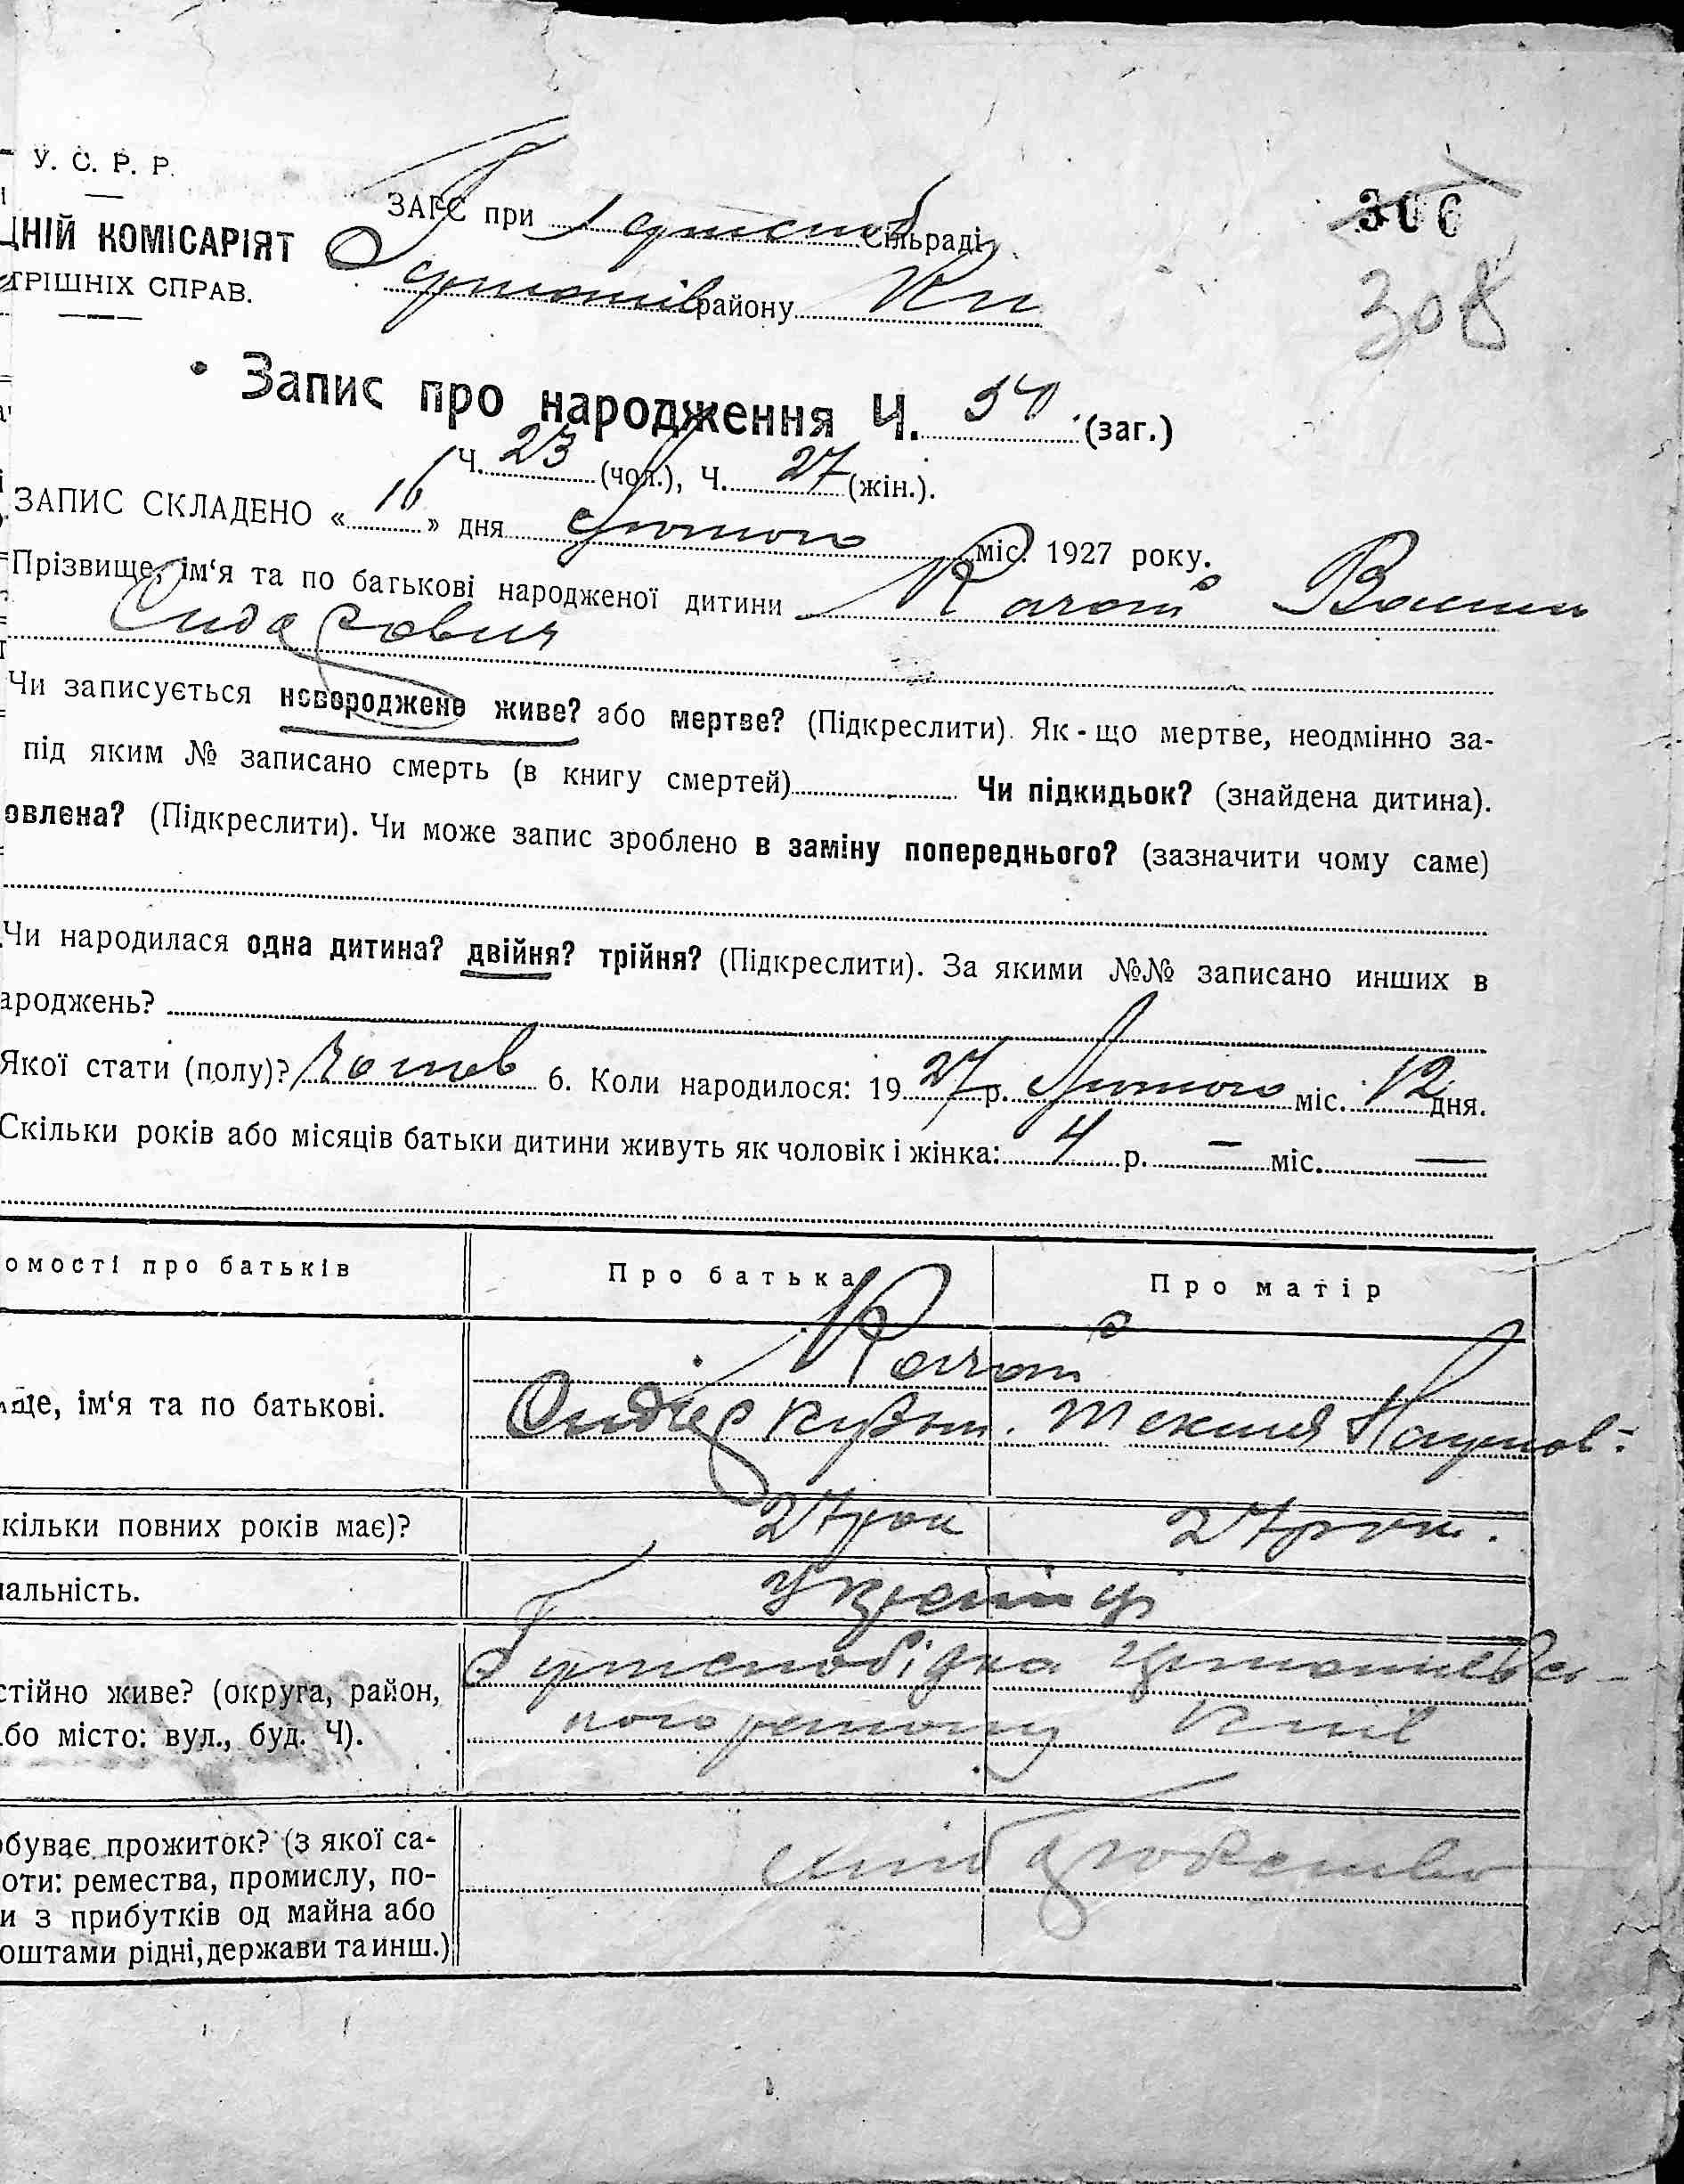 У. С. Р. Р.
ЗАГС при Сільраді
306
ЦНІЙ КОМІСАРІЯТ
ТРІШНІХ СПРАВ.
району Ки
308
Запис про народження Ч. 50 (заг.)
Ч. 23 (чол.), Ч. 27 (жін.).
ЗАПИС СКЛАДЕНО « 16 » дня Лютого міс. 1927 року.
Прізвище, ім‘я та по батькові народженої дитини
Сидорович
Чи записується новороджене живе? або мертве? (Підкреслити). Як-що мертве, неодмінно за-
під яким № записано смерть (в книгу смертей) Чи підкидьок? (знайдена дитина).
овлена? (Підкреслити). Чи може запис зроблено в заміну попереднього? (зазначити чому саме)
Чи народилася одна дитина? двійня? трійня? (Підкреслити). За якими №№ записано инших в
ароджень?
Якої стати (полу)? 6. Коли народилося: 1927 р. Лютого міс. 12 дня.
Скільки років або місяців батьки дитини живуть як чоловік і жінка: 4 р. — міс. —
омості про батьків Про батька Про матір
ще, ім‘я та по батькові.
Кузьм. Текля Наумов:
кільки повних років має)? 27 рок 27 рок.
альність. Україн ці
стійно живе? (округа, район,
бо місто: вул., буд. Ч).
кого району Київ
обуває прожиток? (з якої са-
оти: ремества, промислу, по-
и з прибутків од майна або
оштами рідні, держави та инш.)
хліборобство